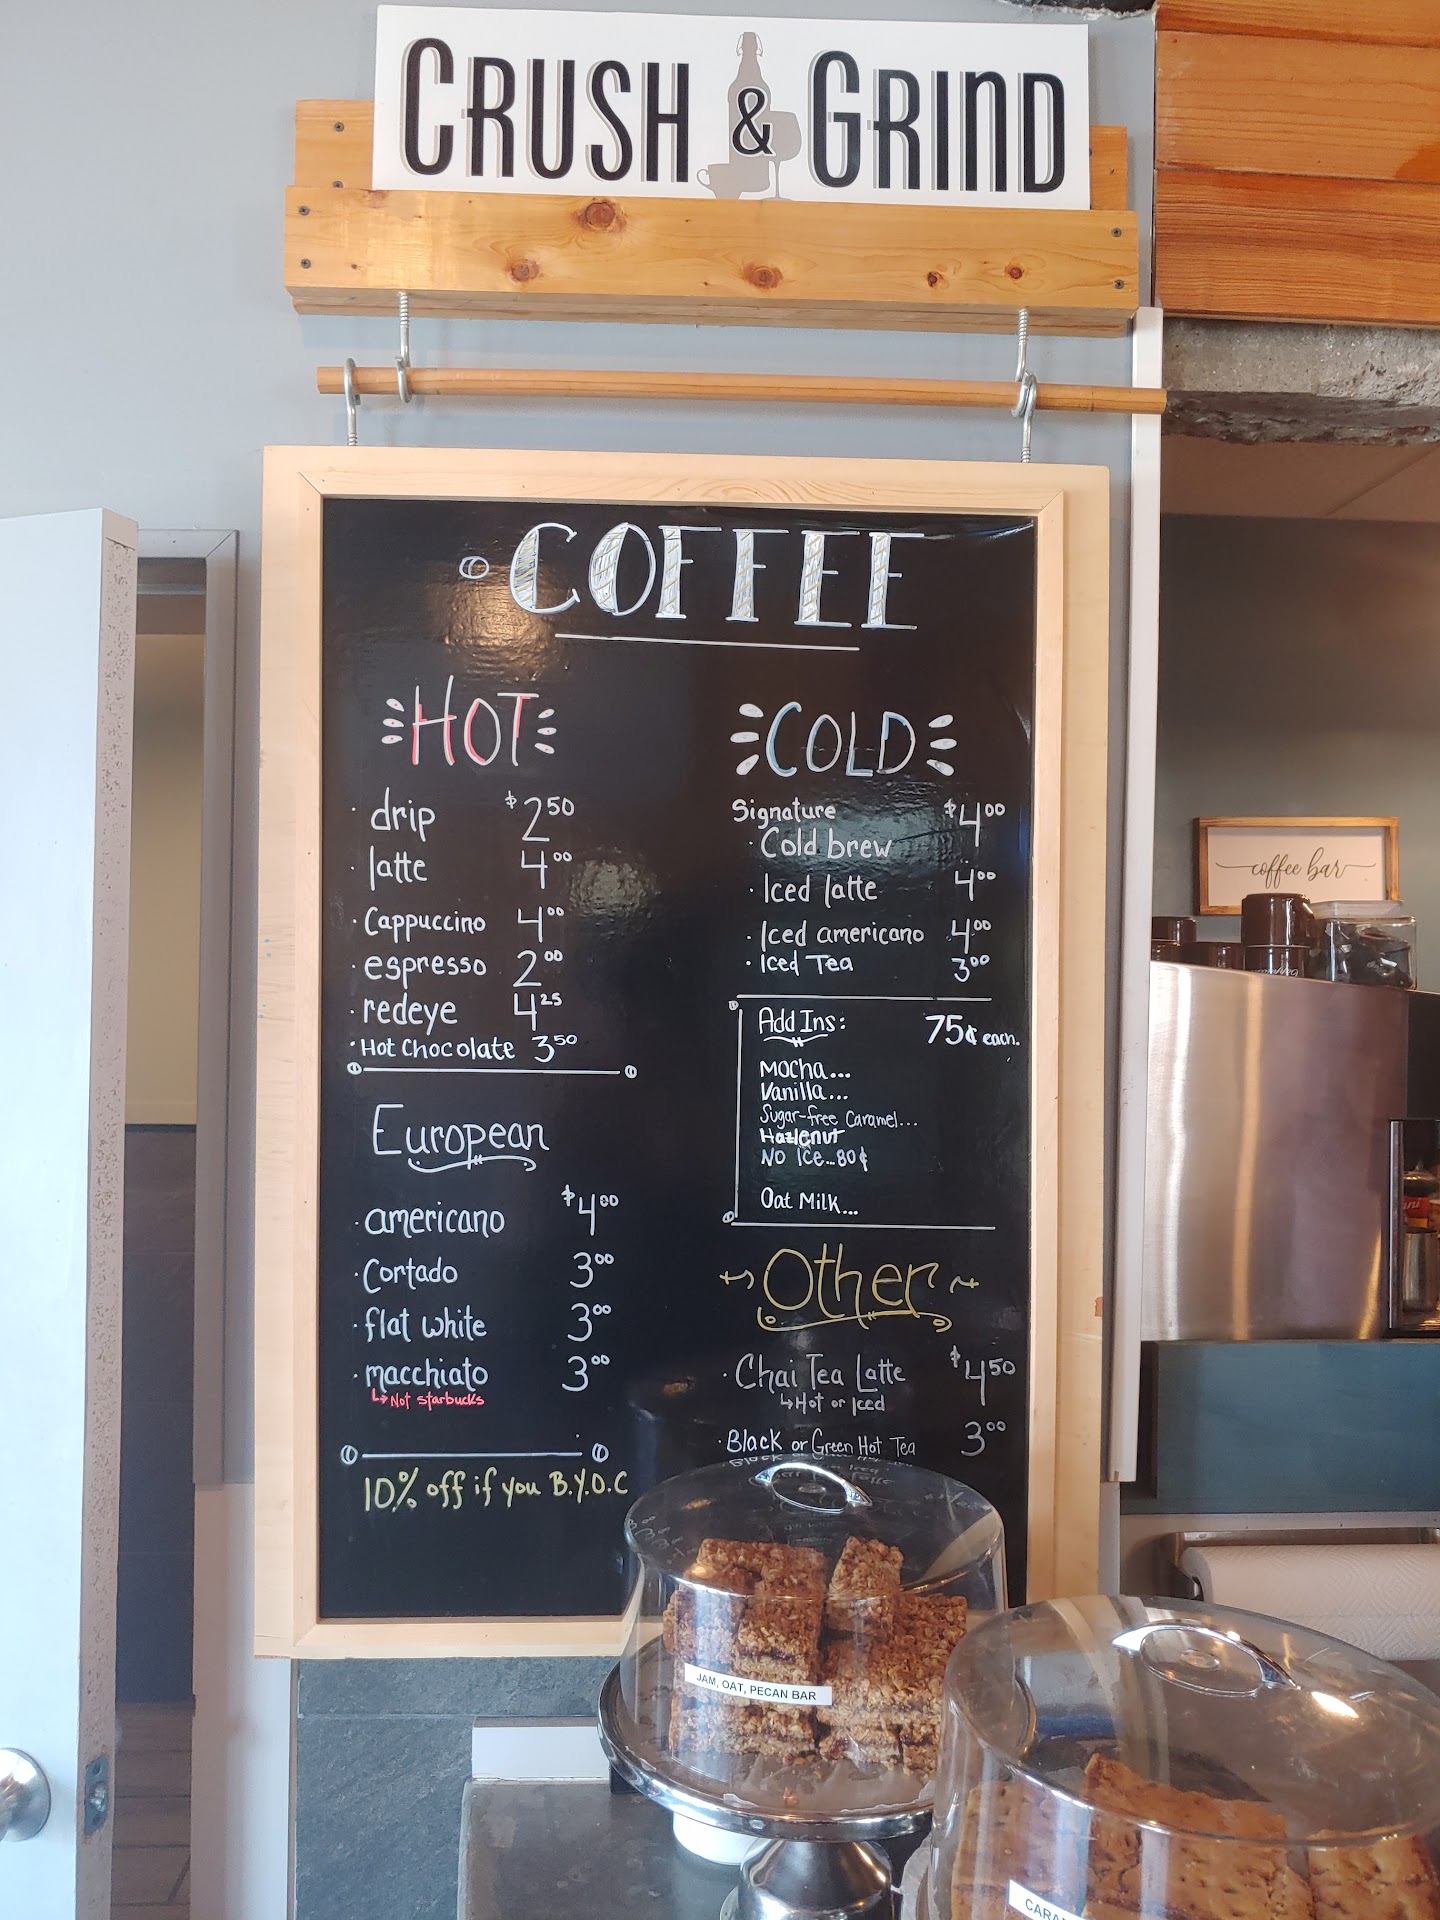 CRUSH & GRIND
COFFEE
HOT
· drip $2.50
· latte 4.00
· Cappuccino 4.00
· espresso 2.00
· redeye 4.25
· Hot Chocolate 3.50
European
· americano $4.00
· Cortado 3.00
· flat white 3.00
· macchiato 3.00
↳ Not starbucks
10% off if you B.Y.O.C
COLD
Signature $4.00
· Cold brew
· Iced latte 4.00
· Iced americano 4.00
· Iced Tea 3.00
Add Ins: 75¢ each.
Mocha...
Vanilla...
Sugar-free Caramel...
Hazlenut
No Ice...80¢
Oat Milk...
Other
· Chai Tea Latte $4.50
↳ Hot or Iced
· Black or Green Hot Tea 3.00
coffee bar
JAM, OAT, PECAN BAR